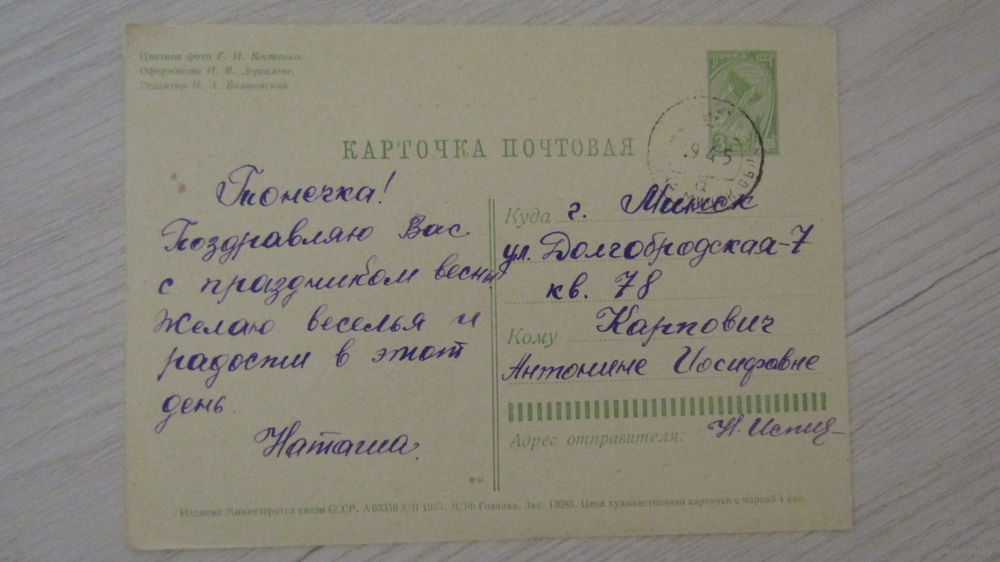 Цветное фото Г. И. Костенко.
Оформление
Редактор
КАРТОЧКА ПОЧТОВАЯ
9 4 5
Тонечка!
Поздравляю Вас
с праздником весны
Желаю веселья и
радости в этот
день.
Наташа.
Куда г. Минск
ул. Долгобродская-7
кв. 78
Кому Карпович
Антонине Иосифовне
Адрес отправителя:
Издание Министерства связи СССР. А 03350 8/II 1965. МПФ Гознака. Зак. 13085. Цена художественной карточки с маркой 4 коп.